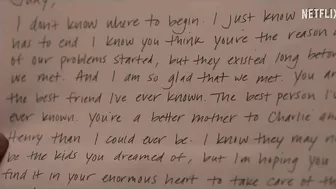 NETFLIX
Judy,
I don't know where to begin. I just know
has to end I know you think you're the reason a
of our problems started, but they existed long befor
we met. And I am so glad that we met. You are
the best friend I've ever known. The best person I'v
ever known. You're a better mother to Charlie an
Henry than I could ever be. I know they may no
be the kids you dreamed of, but I'm hoping you
find it in your enormous heart to take care of